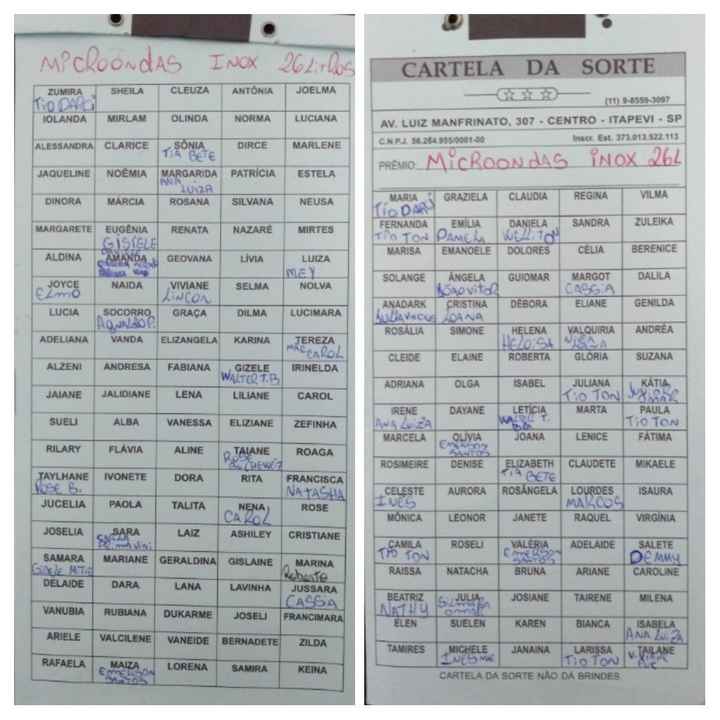 MICROONDAS INOX 26 LITROS
ZUMIRA SHEILA CLEUZA ANTÔNIA JOELMA
TIO DARCI
IOLANDA MIRLAM OLINDA NORMA LUCIANA
ALESSANDRA CLARICE SÔNIA DIRCE MARLENE
TIA BETE
JAQUELINE NOÊMIA MARGARIDA PATRÍCIA ESTELA
ANA LUIZA
DINORA MÁRCIA ROSANA SILVANA NEUSA
MARGARETE EUGÊNIA RENATA NAZARÉ MIRTES
GISIELE
ALDINA AMANDA GEOVANA LÍVIA LUIZA
MEY
JOYCE NAIDA VIVIANE SELMA NOLVA
ELMO LINCON
LUCIA SOCORRO GRAÇA DILMA LUCIMARA
AGNALDO P.
ADELIANA VANDA ELIZANGELA KARINA TEREZA
MÃE CAROL
ALZENI ANDRESA FABIANA GIZELE IRINELDA
WALTER T.B
JAIANE JALIDIANE LENA LILIANE CAROL
SUELI ALBA VANESSA ELIZIANE ZEFINHA
RILARY FLÁVIA ALINE TAIANE ROAGA
ROSE
TAYLHANE IVONETE DORA RITA FRANCISCA
ROSE B. NATASHA
JUCELIA PAOLA TALITA NENA ROSE
CAROL
JOSELIA SARA LAIZ ASHILEY CRISTIANE
SAMARA MARIANE GERALDINA GISLAINE MARINA
Roberto
DELAIDE DARA LANA LAVINHA JUSSARA
CASSIA
VANUBIA RUBIANA DUKARME JOSELI FRANCIMARA
ARIELE VALCILENE VANEIDE BERNADETE ZILDA
RAFAELA MAIZA LORENA SAMIRA KEINA
EMERSON SANTOS
CARTELA DA SORTE
(11) 9-8559-3097
AV. LUIZ MANFRINATO, 307 - CENTRO - ITAPEVI - SP
C.N.P.J. 56.264.955/0001-00 Inscr. Est. 373.013.522.113
PRÊMIO: MICROONDAS INOX 26L
MARIA GRAZIELA CLAUDIA REGINA VILMA
TIO DARCI
FERNANDA EMÍLIA DANIELA SANDRA ZULEIKA
TIO TON PAMELA WELLITON
MARISA EMANOELE DOLORES CÉLIA BERENICE
SOLANGE ÂNGELA GUIOMAR MARGOT DALILA
JOÃO VITOR CASSIA
ANADARK CRISTINA DÉBORA ELIANE GENILDA
LOANA
ROSÁLIA SIMONE HELENA VALQUIRIA ANDRÉA
HELOISA
CLEIDE ELAINE ROBERTA GLÓRIA SUZANA
ADRIANA OLGA ISABEL JULIANA KÁTIA
TIO TON
IRENE DAYANE LETÍCIA MARTA PAULA
ANA LUIZA WALTER T. TIO TON
MARCELA OLÍVIA JOANA LENICE FÁTIMA
EMERSON SANTOS
ROSIMEIRE DENISE ELIZABETH CLAUDETE MIKAELE
TIA BETE
CELESTE AURORA ROSÂNGELA LOURDES ISAURA
INES MARCOS
MÔNICA LEONOR JANETE RAQUEL VIRGÍNIA
CAMILA ROSELI VALÉRIA ADELAIDE SALETE
TIO TON EMERSON SANTOS DEMMY
RAISSA NATACHA BRUNA ARIANE CAROLINE
BEATRIZ JULIA JOSIANE TAIRENE MILENA
NATHY
ELEN SUELEN KAREN BIANCA ISABELA
ANA LUIZA
TAMIRES MICHELE JANAINA LARISSA TAILANE
TIO TON
CARTELA DA SORTE NÃO DÁ BRINDES